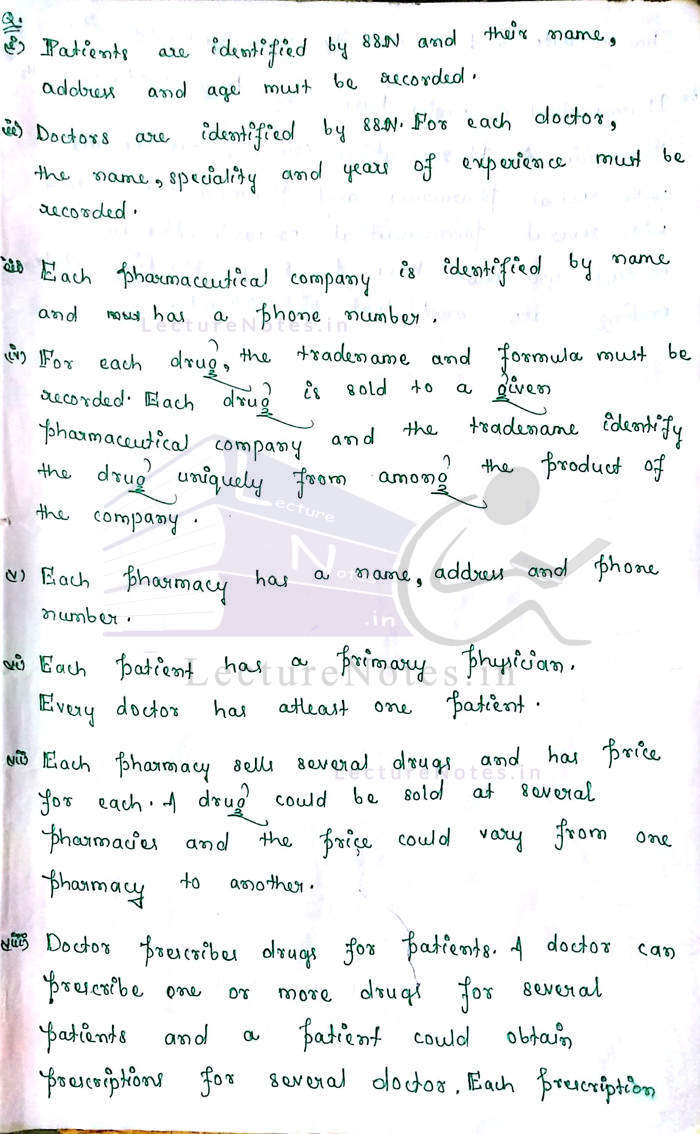 Q.
i) Patients are identified by SSN and their name,
address and age must be recorded.
ii) Doctors are identified by SSN. For each doctor,
the name, speciality and years of experience must be
recorded.
iii) Each pharmaceutical company is identified by name
and has a phone number.
LectureNotes.in
iv) For each drug, the tradename and formula must be
recorded. Each drug is sold to a given
pharmaceutical company and the tradename identify
the drug uniquely from among the product of
the company.
v) Each pharmacy has a name, address and phone
number.
vi) Each patient has a primary physician.
LectureNotes.in
Every doctor has atleast one patient.
vii) Each pharmacy sells several drugs and has price
LectureNotes.in
for each. A drug could be sold at several
pharmacies and the price could vary from one
pharmacy to another.
viii) Doctor prescribes drugs for patients. A doctor can
prescribe one or more drugs for several
patients and a patient could obtain
prescriptions for several doctor. Each prescription